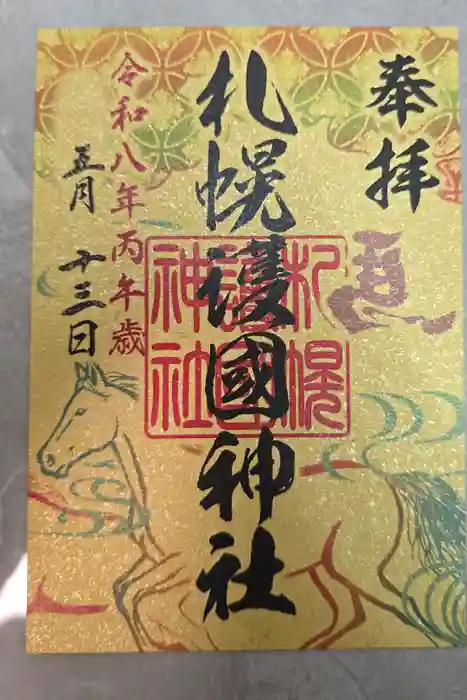 奉拝
札幌護國神社
札幌
護國
神社
令和八年丙午歳
五月 十三日